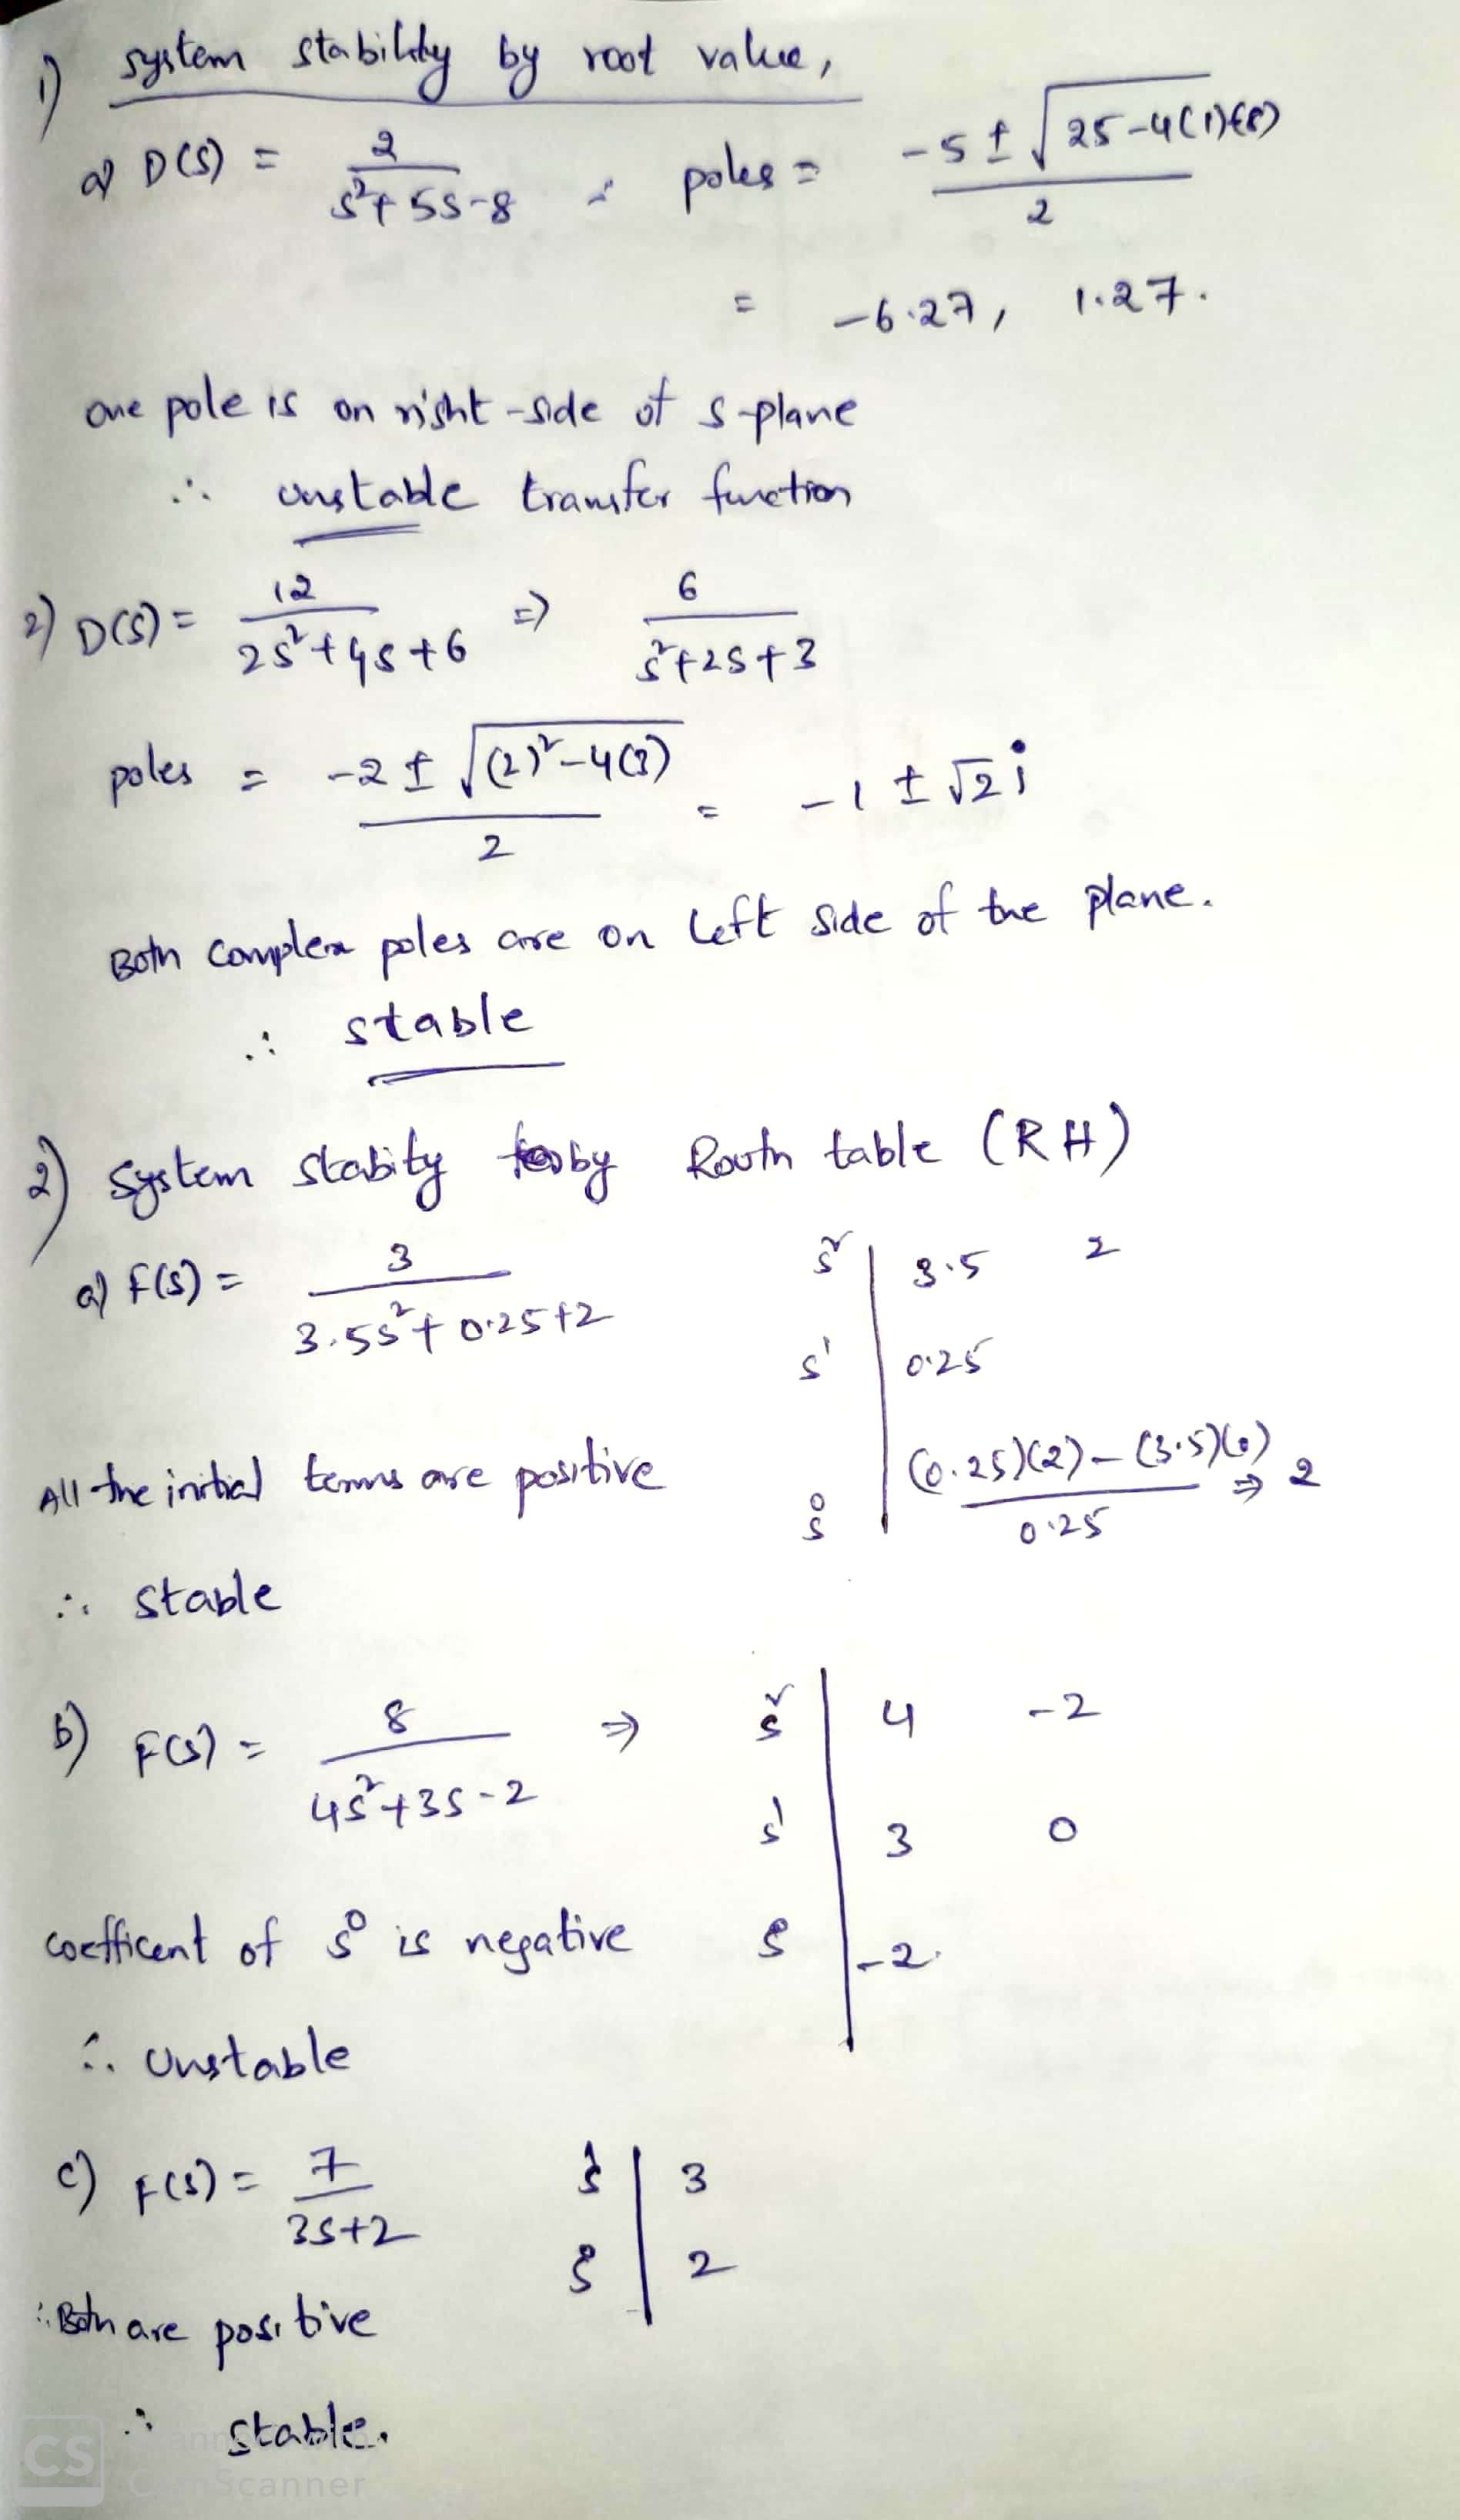 1) system stability by root value,
a) D(S) = 2 / s²+5s-8 ; poles = -5 ± √25-4(1)(-8) / 2
= -6.27, 1.27.
one pole is on right-side of s-plane
∴ unstable transfer function
2) D(S) = 12 / 2s²+4s+6 ⇒ 6 / s²+2s+3
poles = -2 ± √(2)²-4(3) / 2 = -1 ± √2 j
Both complex poles are on left side of the plane.
∴ stable
2) system stabity by Routh table (RH)
a) F(S) = 3 / 3.5s²+0.25+2
s² | 3.5 2
s¹ | 0.25
s⁰ | (0.25)(2)-(3.5)(0) / 0.25 ⇒ 2
All the initial terms are positive
∴ stable
b) F(S) = 8 / 4s²+3s-2 ⇒
s² | 4 -2
s¹ | 3 0
s⁰ | -2.
coefficent of s⁰ is negative
∴ Unstable
c) F(S) = 7 / 3s+2
s¹ | 3
s⁰ | 2
∴ Both are positive
∴ stable.
CS
CamScanner